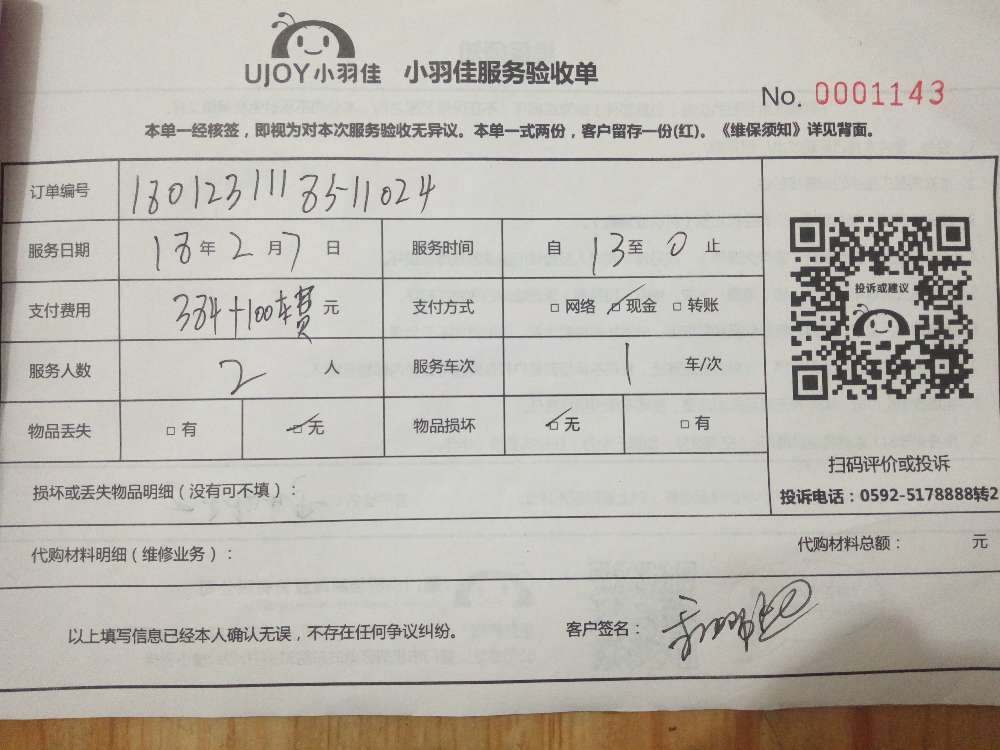 UJOY小羽佳 小羽佳服务验收单
No. 0001143
本单一经核签，即视为对本次服务验收无异议。本单一式两份，客户留存一份(红)。《维保须知》详见背面。
订单编号 18012311185-11024
服务日期 18年2月7日 服务时间 自13至0止
支付费用 384+100车费元 支付方式 □网络 □现金 □转账
服务人数 2人 服务车次 1车/次
物品丢失 □有 □无 物品损坏 □无 □有
投诉或建议
扫码评价或投诉
投诉电话：0592-5178888转2
损坏或丢失物品明细（没有可不填）：
代购材料明细（维修业务）： 代购材料总额： 元
以上填写信息已经本人确认无误，不存在任何争议纠纷。 客户签名：